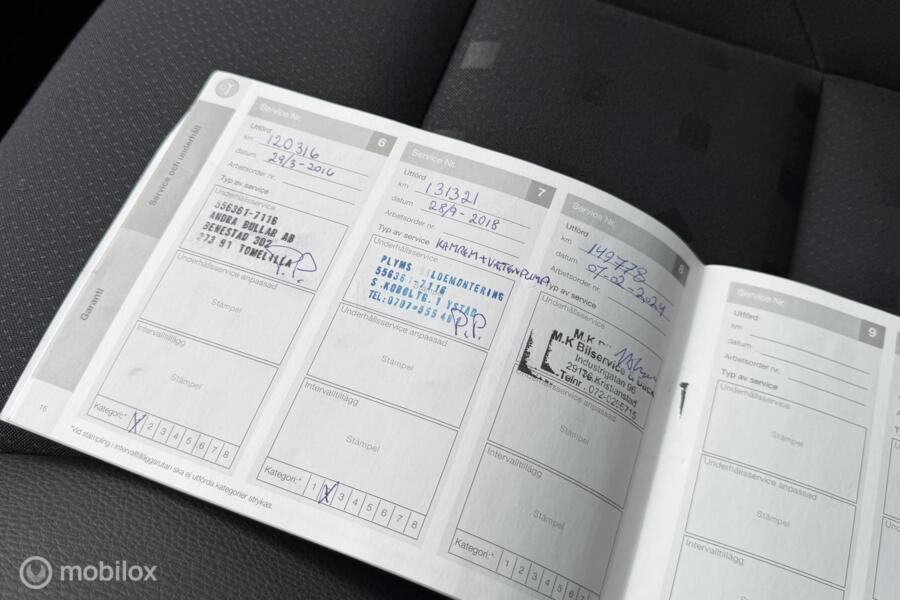 Service och underhåll
Garanti
16
Service Nr.
6
Utförd
km 120316
datum 29/3-2016
Arbetsorder nr.
Typ av service
Underhållsservice
556361-7116
ANDRA BULLAR AB
BENESTAD 302
273 91 TOMELILLA
P.P.
Underhållsservice anpassad
Stämpel
Intervalltillägg
Stämpel
Kategori:* X 2 3 4 5 6 7 8
*Vid stämpling i Intervalltilläggsrutan ska ej utförda kategorier strykas.
Service Nr.
7
Utförd
km 131321
datum 28/9-2018
Arbetsorder nr.
Typ av service KAMREM + VATTENPUMP
Underhållsservice
PLYMS BILDEMONTERING
556361-7116
S.KOBOLTG.1 YSTAD
P.P.
Underhållsservice anpassad
Stämpel
Intervalltillägg
Stämpel
Kategori:* 1 X 3 4 5 6 7 8
Service Nr.
8
Utförd
km 149778
datum 07-02-2024
Arbetsorder nr.
Typ av service
Underhållsservice
M.K Bilservice
Industrigatan 96
29136 Kristianstad
Telnr: 072-0266715
Underhållsservice anpassad
Stämpel
Intervalltillägg
Stämpel
Kategori:* 1 2 3 4 5 6 7 8
Service Nr.
9
Utförd
km
datum
Arbetsorder nr.
Typ av service
Underhållsservice
Stämpel
Underhållsservice anpassad
Stämpel
Intervalltillägg
Stämpel
mobilox